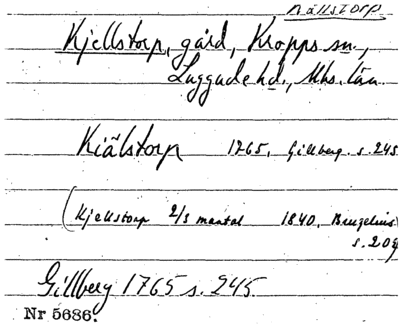 Källstorp
Kjellstorp, gård, Kropps sn.,
Luggude hd., Mhs. län
Kiälstorp 1765, Gillberg s. 245
(Kjellstorp 2/3 mantal 1840, Bruzelius
s. 209
Gillberg 1765 s. 245.
Nr 5686.